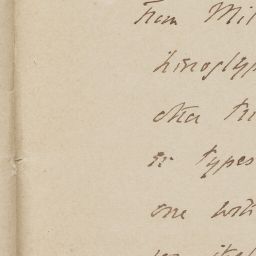 from Mil
hieroglyp
other tri
or types
one with